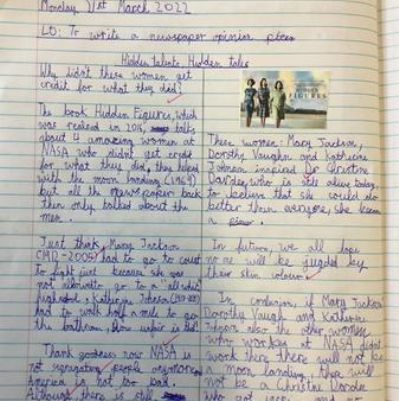 Monday 21st March 2022
LO: To write a newspaper opinion piece
Hidden talents Hidden tales
Why didn't these women get
credit for what they did?
The book Hidden Figures, which
was realesed in 2016, talks
about 4 amazing women at
NASA who didn't get credit
for what they did, they helped
with the moon landing (1969)
but all the newspaper back
then only talked about the
men.
Just think, Mary Jackson
(1921-2005) had to go to court
to fight just because she was
not allowed to go to a "all white"
highschool, Katherine Johnson
had to walk half a mile to go
the bathroom, how unfair is that!
Thank goodness now NASA is
not segregating people anymore
America is not too bad.
Although there is still
HIDDEN
FIGURES
These women: Mary Jackson,
Dorothy Vaughn and Katherine
Johnson inspired Dr Christine
Darden, who is still alive today,
to believe that she could do
better than everyone, she been
a
In future, we all hope
no one will be judged by
their skin colour
In conclusion, if Mary Jackson
Dorothy Vaugh and Katherine
Johnson also the other women
who worked at NASA didn't
work there there will not be
a moon landing, there will
not be a Christine Darden
who got